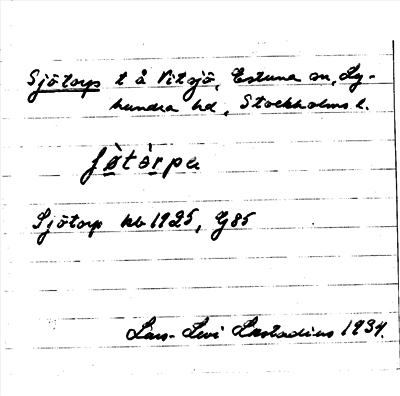 Sjötorp t å Vitsjö, Estuna sn, Ly-
hundra hd, Stockholms l.
Sjötorp kb 1925, G85
Lars-Levi Læstadius 1934.